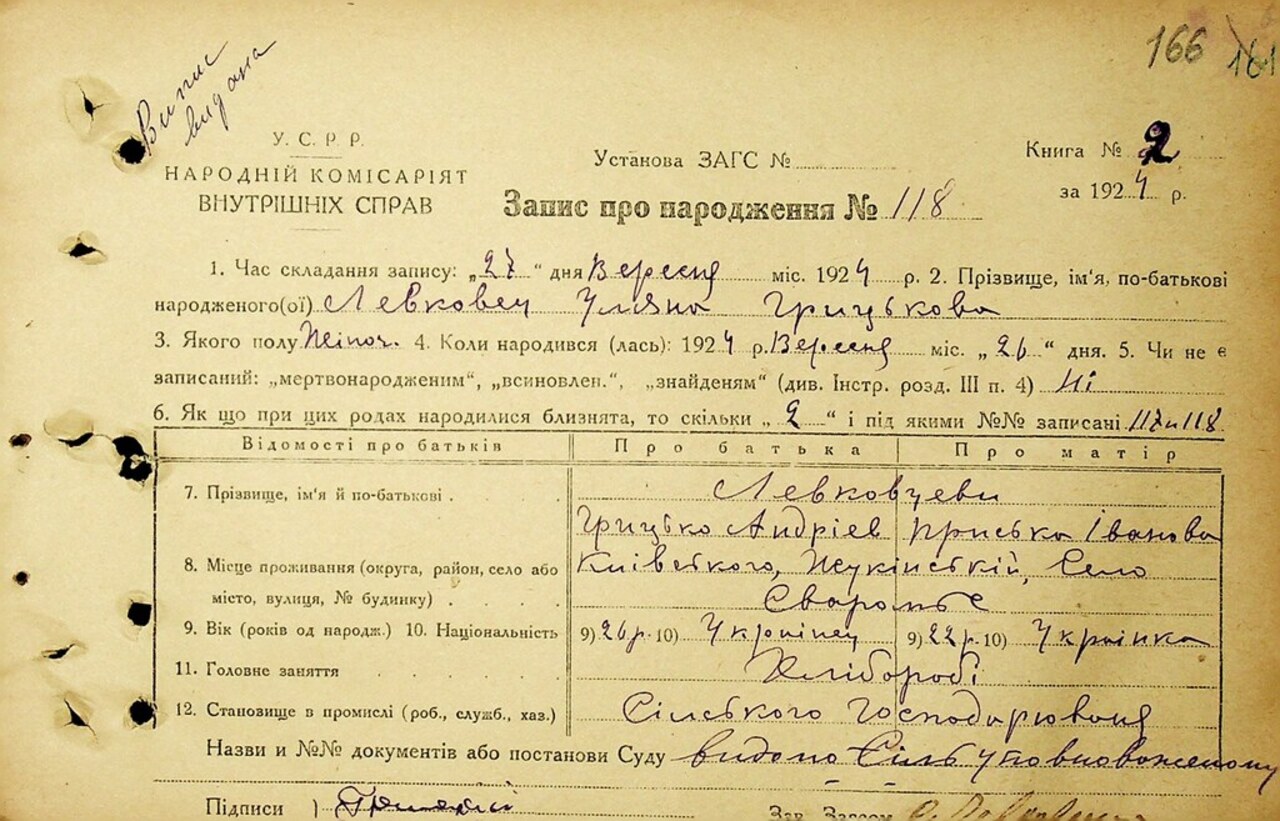 166
Випис
видана
У. С. Р. Р.
НАРОДНІЙ КОМІСАРІЯТ
ВНУТРІШНІХ СПРАВ
Установа ЗАГС №
Книга № 2
за 1924 р.
Запис про народження № 118
1. Час складання запису: „27“ дня Вересня міс. 1924 р. 2. Прізвище, ім'я, по-батькові
народженого(ої) Левковец Уляна Грицькова
3. Якого полу Жіноч. 4. Коли народився (лась): 1924 р. Вересня міс. „26“ дня. 5. Чи не є
записаний: „мертвонародженим“, „всиновлен.“, „знайденям“ (див. Інстр. розд. III п. 4) Ні
6. Як що при цих родах народилися близнята, то скільки „2“ і під якими №№ записані 117 и 118
Відомості про батьків Про батька Про матір
7. Прізвище, ім'я й по-батькові Левковцеви
Грицько Андріев Приська Іванова
8. Місце проживання (округа, район, село або Київського, Жукінській, Село
місто, вулиця, № будинку) Сваромьє
9. Вік (років од народж.) 10. Національність 9) 26 р. 10) Украінец 9) 22 р. 10) Украінка
11. Головне заняття Хлібороби
12. Становище в промислі (роб., служб., хаз.) Сільського Господарювання
Назви и №№ документів або постанови Суду видано Сіль уповноваженому
Підписи
Зав. Загсом